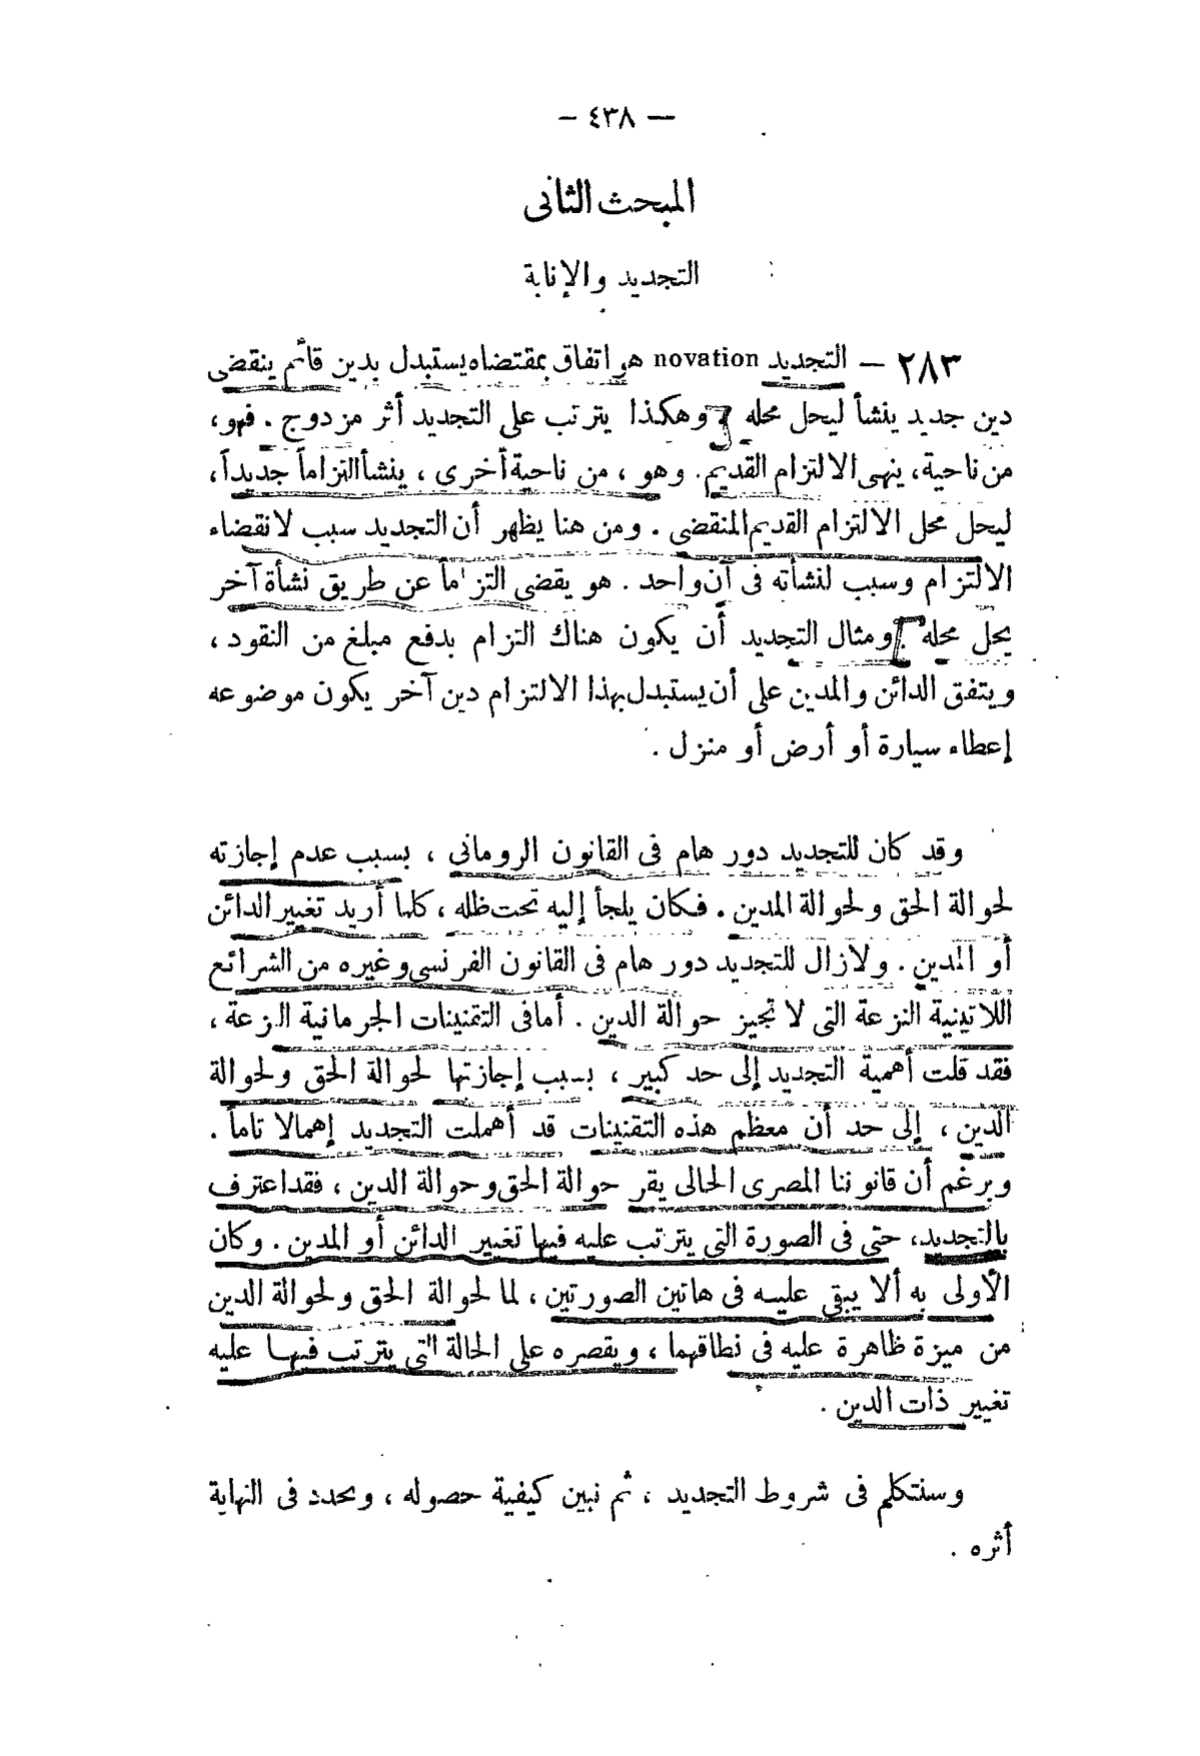 — ٤٣٨ —
المبحث الثانى
التجديد والإنابة
٢٨٣ — التجديد novation هو اتفاق بمقتضاه يستبدل بدين قائم ينقضى
دين جديد ينشأ ليحل محله . وهكذا يترتب على التجديد أثر مزدوج . فهو ،
من ناحية ، ينهى الالتزام القديم . وهو ، من ناحية أخرى ، ينشأ التزاماً جديداً ،
ليحل محل الالتزام القديم المنقضى . ومن هنا يظهر أن التجديد سبب لانقضاء
الالتزام وسبب لنشأته فى آن واحد . هو يقضى التزاماً عن طريق نشأة آخر
يحل محله . ومثال التجديد أن يكون هناك التزام بدفع مبلغ من النقود ،
ويتفق الدائن والمدين على أن يستبدل بهذا الالتزام دين آخر يكون موضوعه
إعطاء سيارة أو أرض أو منزل .
وقد كان للتجديد دور هام فى القانون الرومانى ، بسبب عدم إجازته
لحوالة الحق ولحوالة المدين . فكان يلجأ إليه تحت ظله ، كلما أريد تغيير الدائن
أو المدين . ولازال للتجديد دور هام فى القانون الفرنسى وغيره من الشرائع
اللاتينية النزعة التى لا تجيز حوالة الدين . أما فى التقنينات الجرمانية النزعة ،
فقد قلت أهمية التجديد إلى حد كبير ، بسبب إجازتها لحوالة الحق ولحوالة
الدين ، إلى حد أن معظم هذه التقنينات قد أهملت التجديد إهمالا تاماً .
وبرغم أن قانوننا المصرى الحالى يقر حوالة الحق وحوالة الدين ، فقد اعترف
بالتجديد ، حتى فى الصورة التى يترتب عليه فيها تغيير الدائن أو المدين . وكان
الأولى به ألا يبقى عليه فى هاتين الصورتين ، لما لحوالة الحق ولحوالة الدين
من ميزة ظاهرة عليه فى نطاقهما ، ويقصره على الحالة التى يترتب فيها عليه
تغيير ذات الدين .
وسنتكلم فى شروط التجديد ، ثم نبين كيفية حصوله ، ونحدد فى النهاية
أثره .